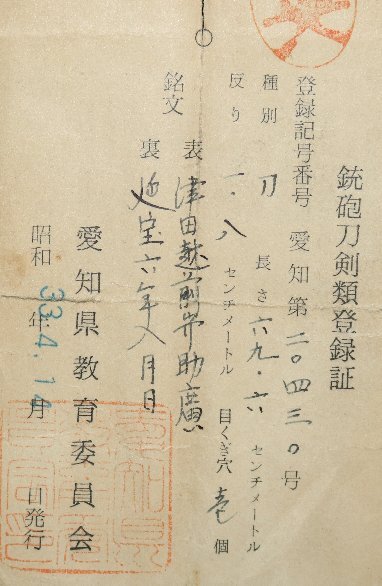 銃砲刀剣類登録証
登録記号番号 愛知第二〇四三〇号
種別 刀 長さ 六九・六 センチメートル
反り 一・八 センチメートル 目くぎ穴 壱 個
銘文 表 津田越前守助廣
裏 延宝六年八月日
昭和 年 月 日発行
33.4.14
愛知県教育委員会